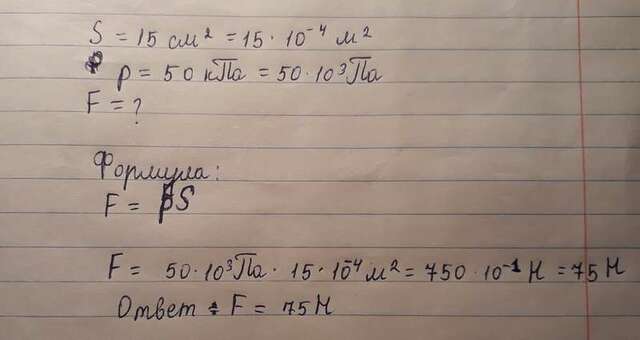 S = 15 см² = 15 · 10⁻⁴ м²
p = 50 кПа = 50 · 10³ Па
F = ?
Формула:
F = pS
F = 50 · 10³ Па · 15 · 10⁻⁴ м² = 750 · 10⁻¹ Н = 75 Н
Ответ: F = 75 Н